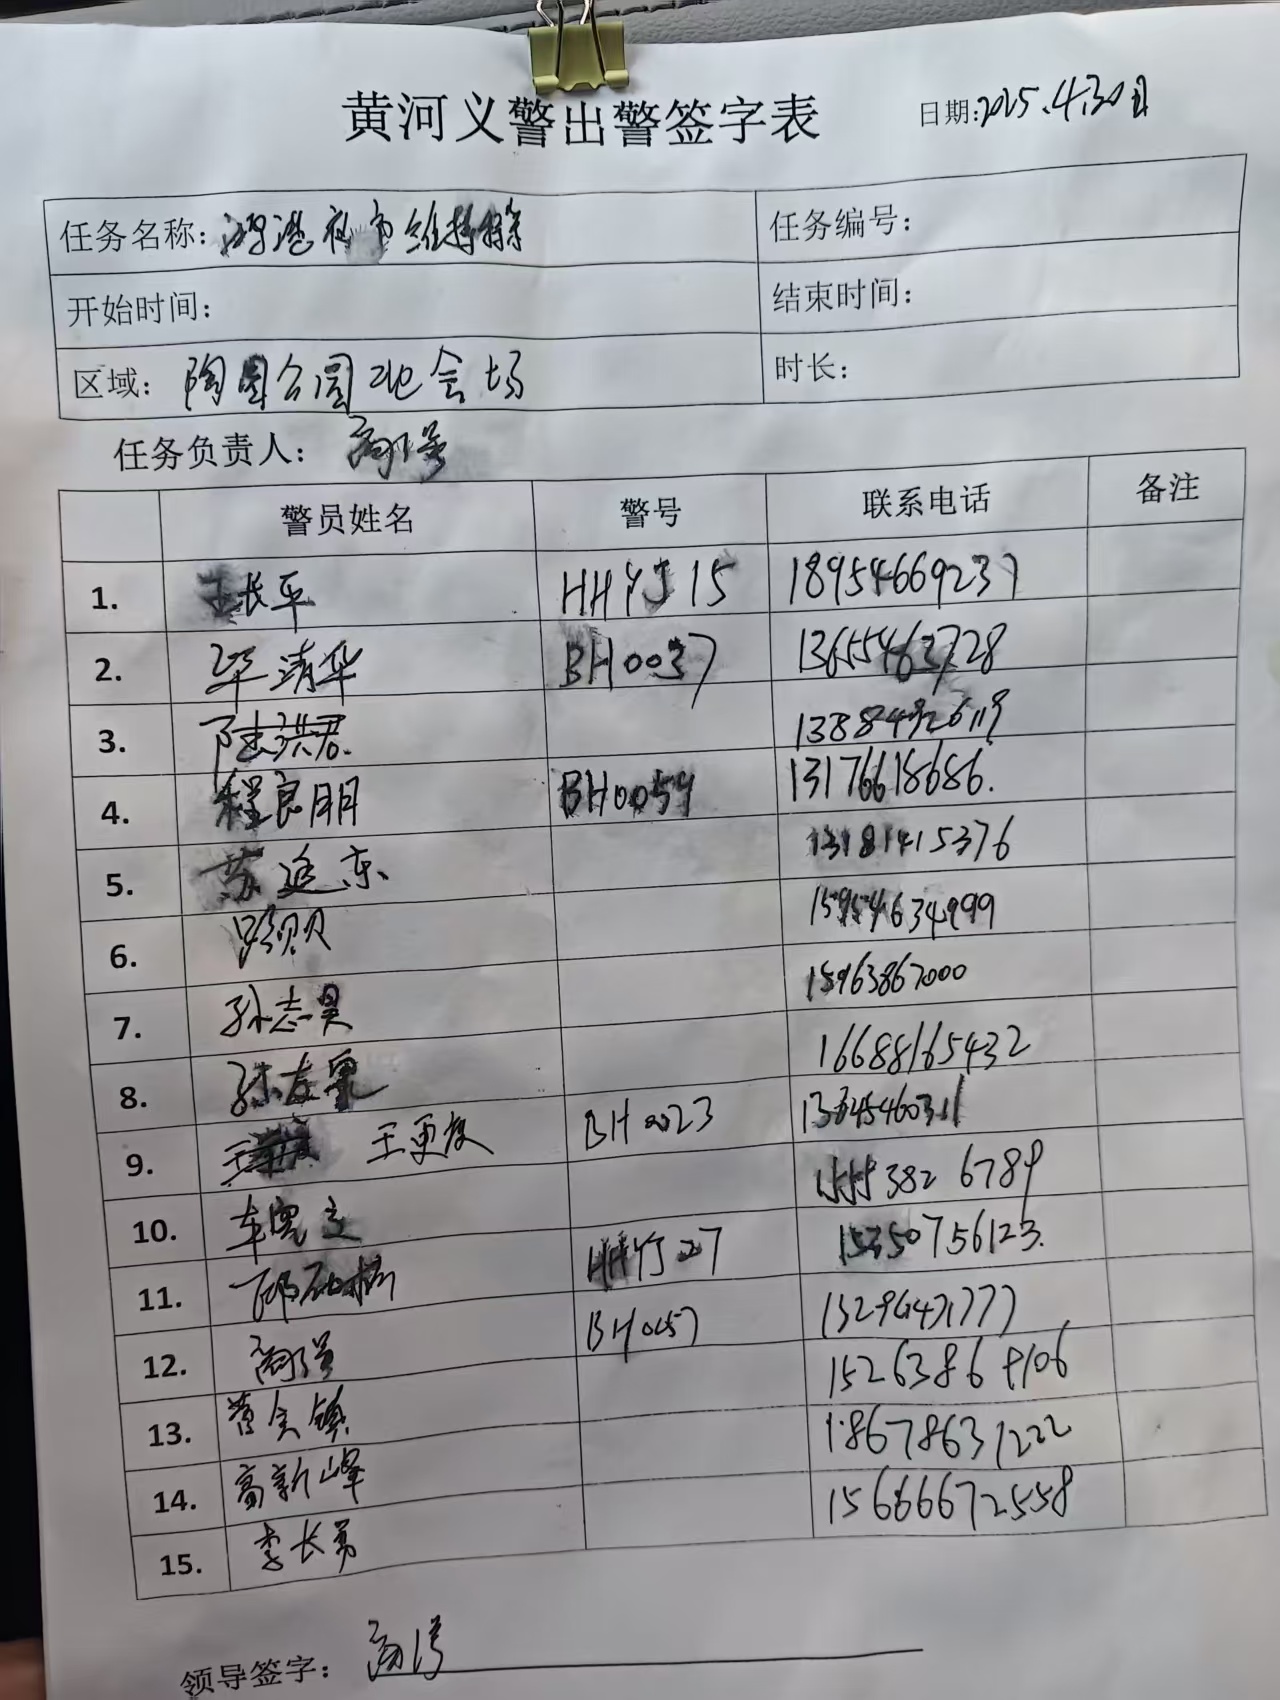 黄河义警出警签字表
日期:2025.4.30日
任务名称: 任务编号:
开始时间: 结束时间:
区域: 陶园公园 会场 时长:
任务负责人: 商强
警员姓名 警号 联系电话 备注
1. 王长平 HHYJ15 18954669237
2. 毕清华 BH0037 13655463728
3. 陆洪君 13884926119
4. 程良朋 BH0059 13176618686.
5. 苏延东 13181415376
6. 路贝贝 15954634999
7. 孙志昊 15963867000
8. 孙 16688165432
9. 王更友 BH0023 13645460311
10. 车 15593826789
11. 邱 HHYJ27 15350756123.
12. 商强 BH0057 13296471777
13. 曹 镇 15263868106
14. 高新峰 18678631222
15. 李长勇 15666672558
领导签字: 商强